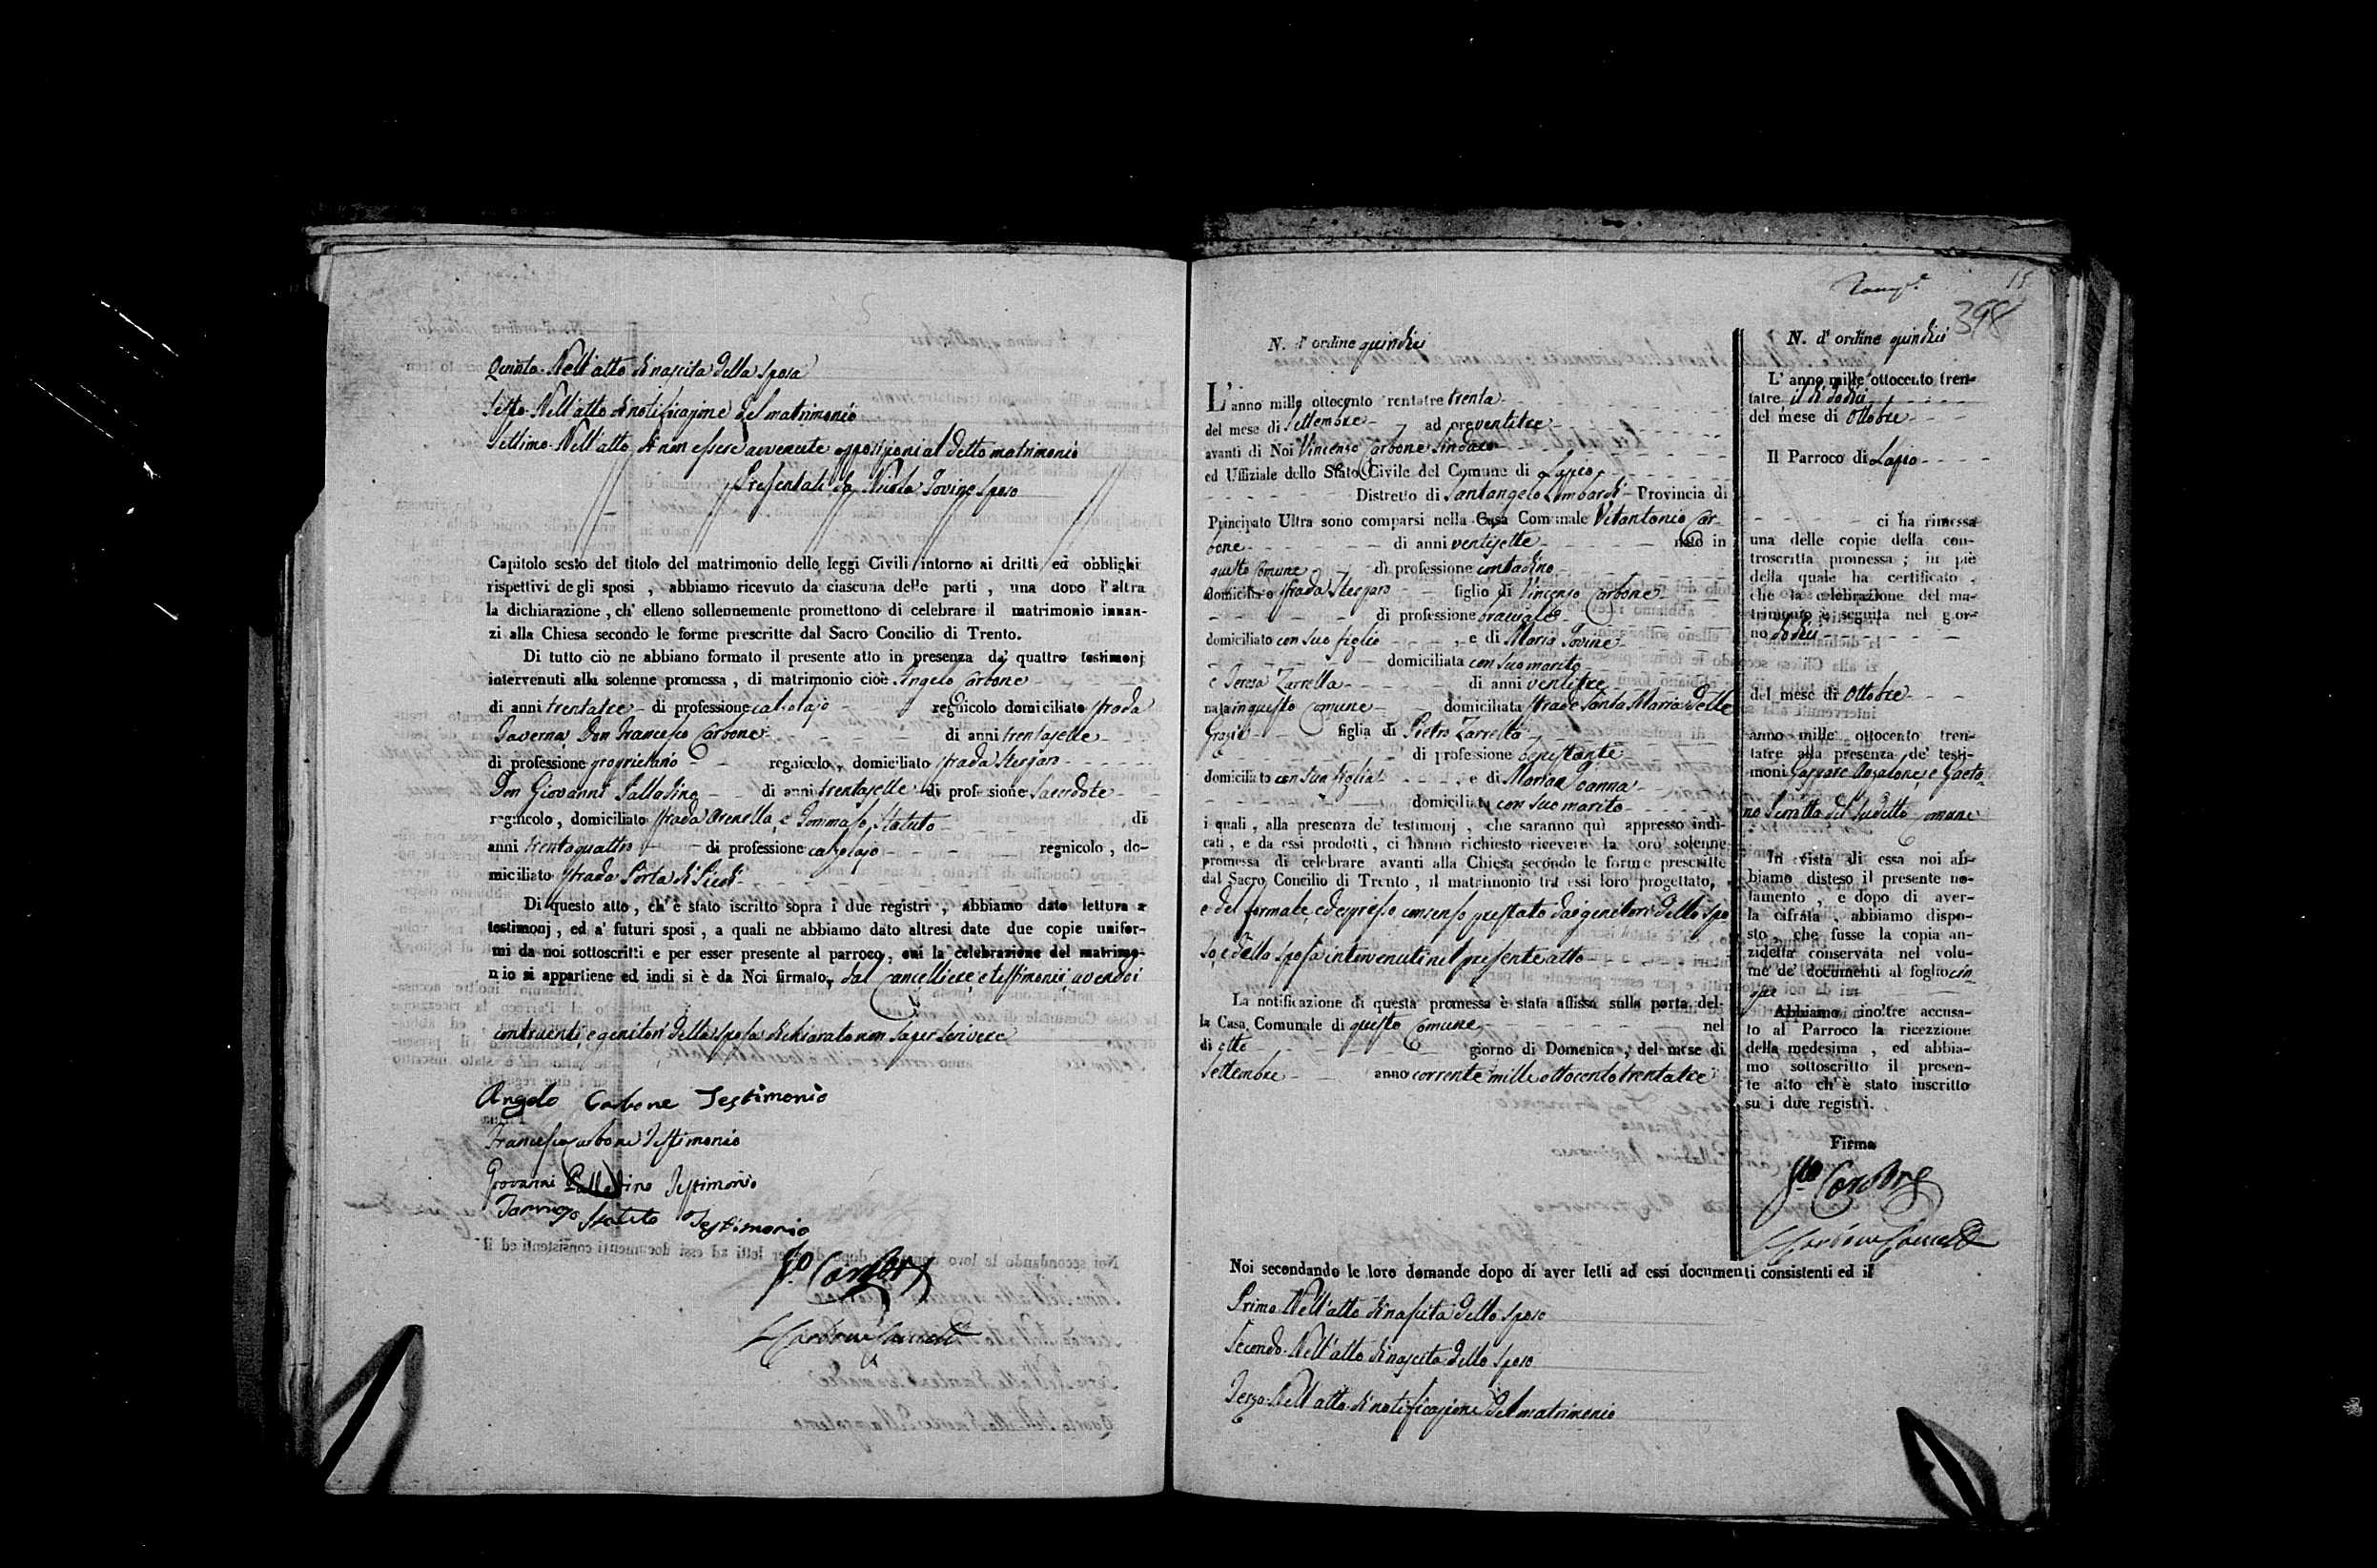 Quinto. Nell'atto di nascita della sposa
Sesto. Nell'atto di notificazione del matrimonio
Settimo. Nell'atto di non essere avvenute opposizioni al detto matrimonio
Presentati da Nicola Iovine sposo
Capitolo sesto del titolo del matrimonio delle leggi Civili intorno ai dritti ed obblighi
rispettivi degli sposi , abbiamo ricevuto da ciascuna delle parti , una dopo l'altra
la dichiarazione , ch' elleno sollennemente promettono di celebrare il matrimonio innan-
zi alla Chiesa secondo le forme prescritte dal Sacro Concilio di Trento.
Di tutto ciò ne abbiano formato il presente atto in presenza de' quattro testimonj
intervenuti alla solenne promessa , di matrimonio cioè Angelo Carbone
di anni trentatre di professione calzolajo regnicolo domiciliato strada
Taverna, Don Francesco Carbone di anni trentasette
di professione proprietario regnicolo, domiciliato strada
Don Giovanni Palladino di anni trentasette di professione Sacerdote
regnicolo , domiciliato strada Arenella, e Tommaso Statuto , di
anni trentaquattro di professione calzolajo regnicolo , do-
miciliato strada Porta di
Di questo atto , ch'è stato iscritto sopra i due registri , abbiamo dato lettura a
testimonj , ed a' futuri sposi , a quali ne abbiamo dato altresì date due copie unifor-
mi da noi sottoscritti e per esser presente al parroco, cui la celebrazione del matrimo-
nio si appartiene ed indi si è da Noi firmato, dal Cancelliere, e testimonii, avendo i
contraenti, e genitori della sposa dichiarato non saper scrivere
Angelo Carbone Testimonio
Francesco Carbone Testimonio
Giovanni Palladino Testimonio
Tommaso Statuto Testimonio
Carbone
Carbone
15
398
N. d' ordine quindici
L'anno mille ottocento trentatre trenta
del mese di Settembre ad ore ventitre
avanti di Noi Vincenzo Carbone Sindaco
ed Uffiziale dello Stato Civile del Comune di Lapio
Distretto di Santangelo Lombardi Provincia di
Principato Ultra sono comparsi nella Casa Comunale Vitantonio Car-
bone di anni ventisette nato in
questo Comune di professione contadino
domiciliato strada figlio di Vincenzo Carbone
di professione bracciale
domiciliato con suo figlio , e di Maria Iovine
domiciliata con suo marito
e Teresa Zarrella di anni ventitre
nata in questo Comune domiciliata strada Santa Maria delle
Grazie figlia di Pietro Zarrella
di professione benestante
domiciliato con sua figlia , e di Maria
domiciliata con suo marito
i quali , alla presenza de' testimonj , che saranno quì appresso indi-
cati , e da essi prodotti , ci hanno richiesto ricevere la loro solenne
promessa di celebrare avanti alla Chiesa secondo le forme prescritte
dal Sacro Concilio di Trento , il matrimonio tra essi loro progettato,
e del formale, ed espresso consenso prestato dai genitori dello spo-
so, e della sposa intervenuti nel presente atto
La notificazione di questa promessa è stata affissa sulla porta del-
la Casa Comunale di questo Comune nel
di otto giorno di Domenica , del mese di
Settembre anno corrente mille ottocento trentatre
Noi secondando le loro domande dopo di aver letti ad essi documenti consistenti ed il
Primo. Nell'atto di nascita dello sposo
Secondo. Nell'atto di nascita dello sposo
Terzo. Nell'atto di notificazione del matrimonio
N. d' ordine quindici
L' anno mille ottocento tren-
tatre il dì dodici
del mese di Ottobre
Il Parroco di Lapio
ci ha rimessa
una delle copie della con-
troscritta promessa ; in piè
della quale ha certificato ,
che la celebrazione del ma-
trimonio è seguita nel gior-
no dodici
del mese di Ottobre
anno mille ottocento tren-
tatre alla presenza de' testi-
moni Gaspare e Gaeto-
no del sudetto Comune
In vista di essa noi ab-
biamo disteso il presente no-
tamento , e dopo di aver-
la cifrata , abbiamo dispo-
sto , che fusse la copia an-
zidetta conservata nel volu-
me de' documenti al foglio cin-
que
Abbiamo inoltre accusa-
to al Parroco la ricezzione
della medesima , ed abbia-
mo sottoscritto il presen-
te atto ch'è stato inscritto
su i due registri.
Firma
Carbone
Carbone